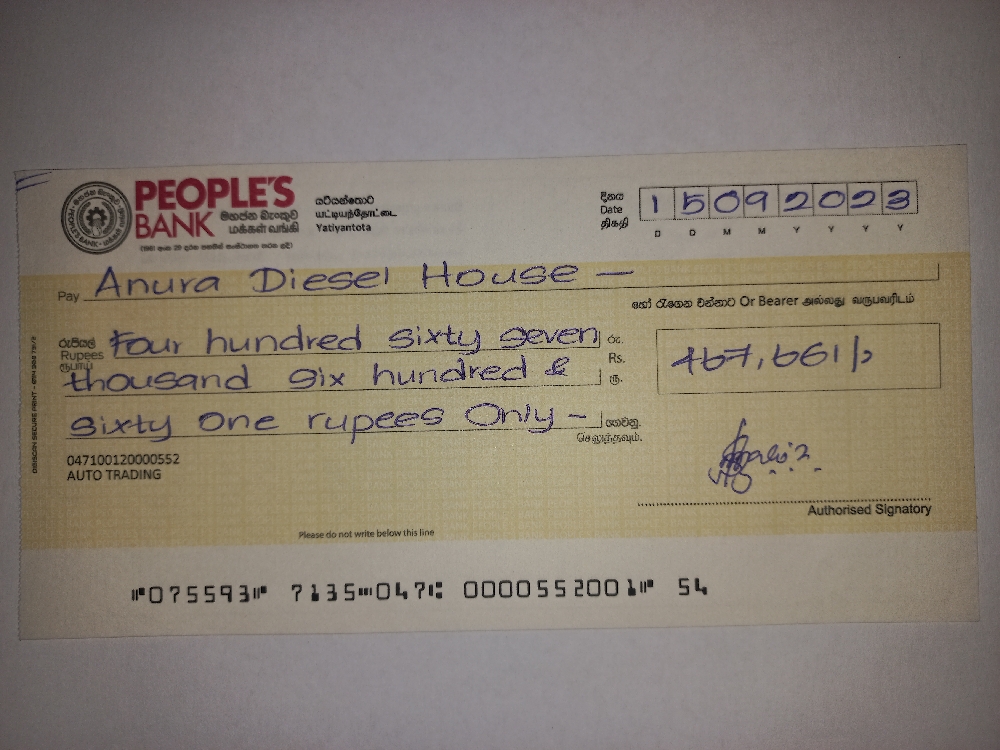 PEOPLE'S
BANK මහජන බැංකුව
மக்கள் வங்கி
යටියන්තොට
யட்டியந்தோட்டை
Yatiyantota
දිනය
Date
திகதி
1 5 0 9 2 0 2 3
D D M M Y Y Y Y
Pay Anura Diesel House —
හෝ රැගෙන එන්නාට Or Bearer அல்லது வருபவரிடம்
රුපියල්
Rupees
ரூபாய்
Four hundred sixty seven
thousand six hundred &
sixty one rupees Only –
රු.
Rs.
ரூ.
467,661/-
ගෙවනු.
செலுத்தவும்.
047100120000552
AUTO TRADING
Authorised Signatory
Please do not write below this line
⑈075593⑈ 7135⑉047⑆ 0000552001⑈ 54